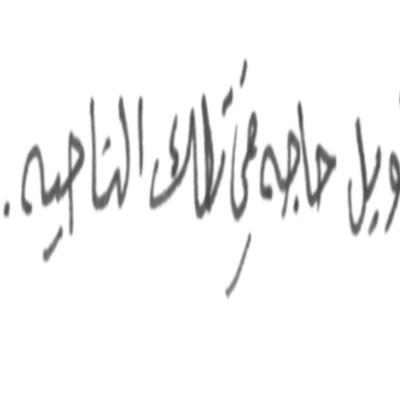 ويل حاجه في تلك الناحيه .